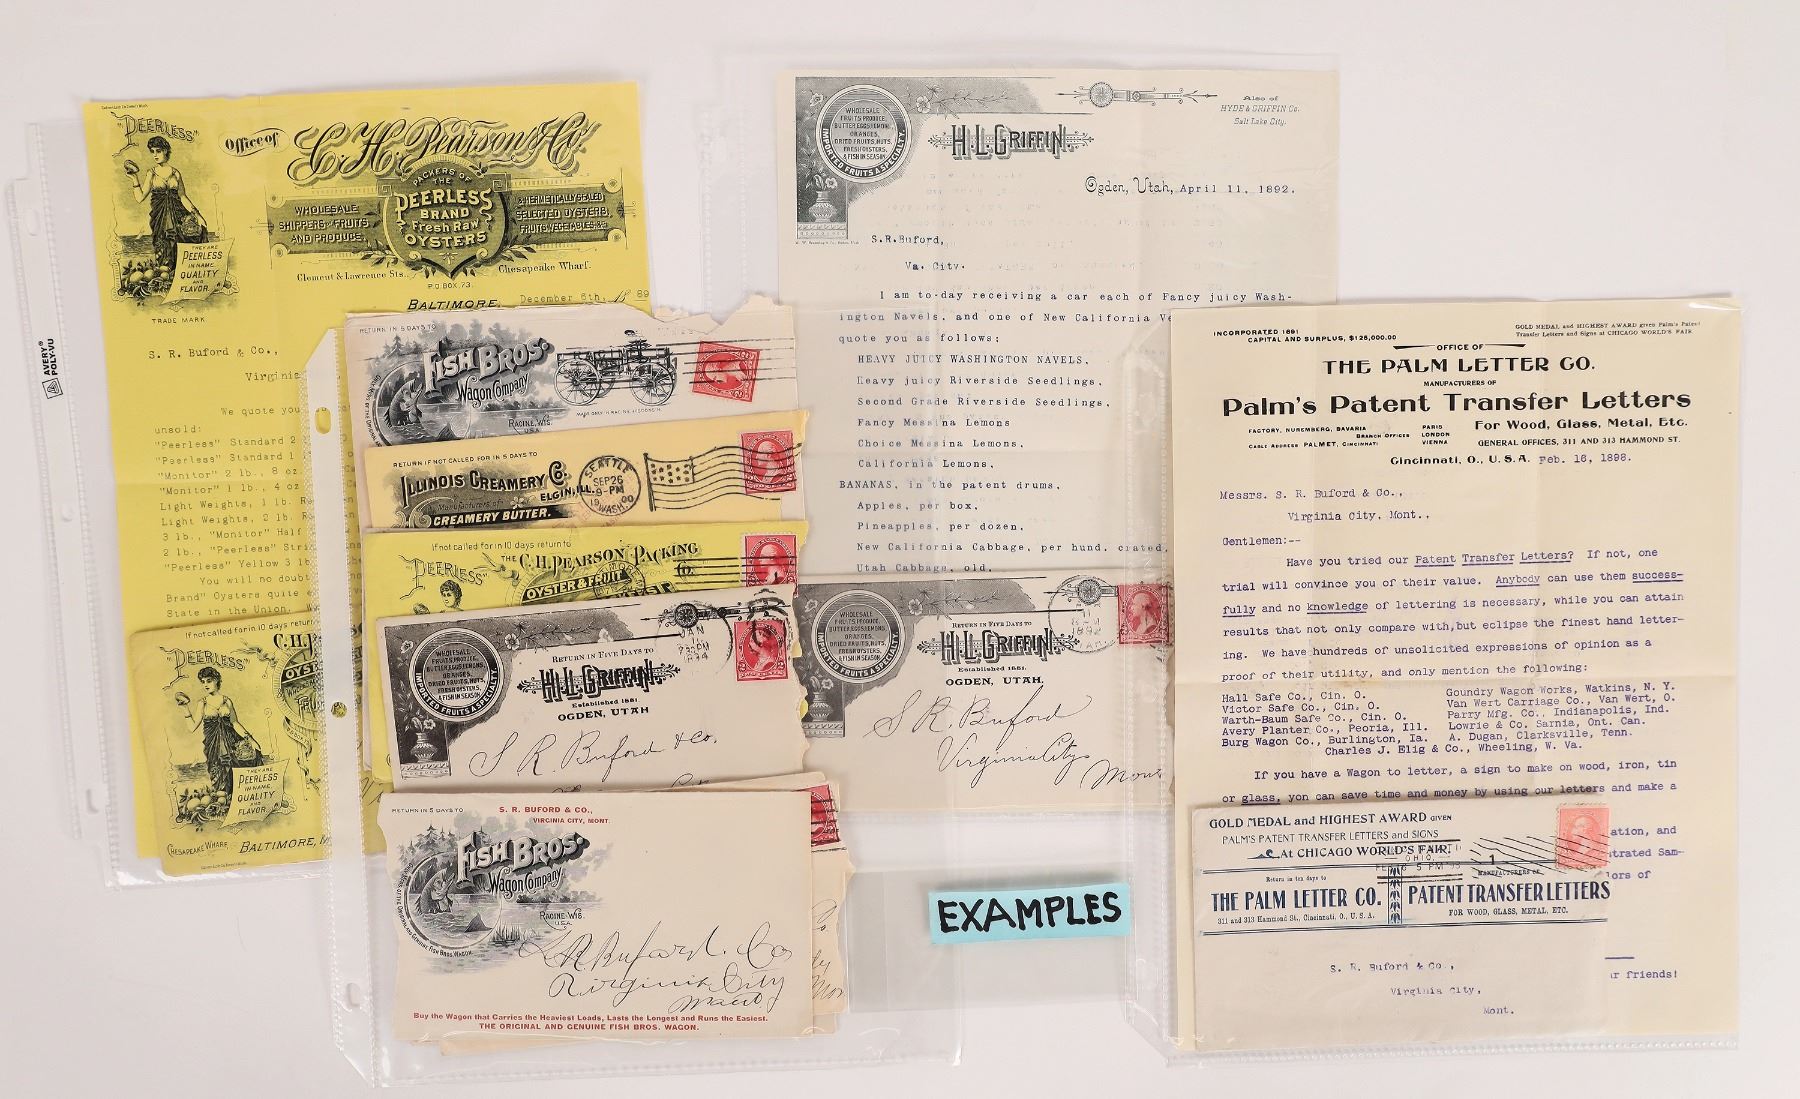 "PEERLESS"
Office of
C. H. Pearson & Co.
PACKERS OF
THE
PEERLESS
BRAND
Fresh Raw
OYSTERS
WHOLESALE
SHIPPERS OF FRUITS
AND PRODUCE.
& HERMETICALLY SEALED
SELECTED OYSTERS,
FRUITS, VEGETABLES, &c
THEY ARE
PEERLESS
IN NAME
QUALITY
AND
FLAVOR.
TRADE MARK
Clement & Lawrence Sts.
Chesapeake Wharf.
P.O. BOX, 73.
BALTIMORE, December 6th, 1889
S. R. Buford & Co.,
Virginia
We quote you
unsold:
"Peerless" Standard 2
"Peerless" Standard 1
"Monitor" 2 lb., 8 oz
"Monitor" 1 lb., 4 oz
Light Weights, 1 lb. R
Light Weights, 2 lb. R
3 lb., "Monitor" Half
2 lb., "Peerless" Stri
"Peerless" Yellow 3 lb
You will no doubt
Brand" Oysters quite
State in the Union.
AVERY®
POLY-VU
If not called for in 10 days return
"PEERLESS"
C. H.
THEY ARE
PEERLESS
IN NAME,
QUALITY
AND
FLAVOR
CHESAPEAKE WHARF, BALTIMORE, M
RETURN IN 5 DAYS TO
FISH BROS.
Wagon Company
RACINE, WIS.
U.S.A.
MADE ONLY IN RACINE, WISCONSIN.
RETURN IF NOT CALLED FOR IN 5 DAYS TO
ILLINOIS CREAMERY CO.
ELGIN, ILL.
Manufacturers of
CREAMERY BUTTER.
SEATTLE
SEP 26
9-PM
1900
WASH.
If not called for in 10 days return to
THE C. H. PEARSON PACKING
Co.
"PEERLESS"
OYSTER & FRUIT
WHOLESALE
FRUITS, PRODUCE,
BUTTER, EGGS, LEMONS,
ORANGES,
DRIED FRUITS, NUTS,
FRESH OYSTERS,
& FISH IN SEASON
IMPORTED FRUITS A SPECIALTY.
RETURN IN FIVE DAYS TO
H. L. GRIFFIN.
Established 1881
OGDEN, UTAH
JAN
7 30 PM
S R Buford & Co,
RETURN IN 5 DAYS TO
S. R. BUFORD & CO.,
VIRGINIA CITY, MONT.
FISH BROS.
Wagon Company
RACINE, WIS.
U.S.A.
S R Buford & Co
Virginia City
Buy the Wagon that Carries the Heaviest Loads, Lasts the Longest and Runs the Easiest.
THE ORIGINAL AND GENUINE FISH BROS. WAGON.
WHOLESALE
FRUITS, PRODUCE,
BUTTER, EGGS, LEMONS,
ORANGES,
DRIED FRUITS, NUTS,
FRESH OYSTERS,
& FISH IN SEASON
IMPORTED FRUITS A SPECIALTY.
H. L. GRIFFIN.
Also of
HYDE & GRIFFIN Co.
Salt Lake City.
Ogden, Utah, April 11, 1892.
S.R.Buford,
Va. City.
I am to-day receiving a car each of Fancy juicy Wash-
ington Navels, and one of New California Ve
quote you as follows;
HEAVY JUICY WASHINGTON NAVELS,
Heavy juicy Riverside Seedlings,
Second Grade Riverside Seedlings,
Fancy Messina Lemons
Choice Messina Lemons,
California Lemons,
BANANAS, in the patent drums,
Apples, per box,
Pineapples, per dozen,
New California Cabbage, per hund. crated,
Utah Cabbage, old,
WHOLESALE
FRUITS, PRODUCE,
BUTTER, EGGS, LEMONS,
ORANGES,
DRIED FRUITS, NUTS,
FRESH OYSTERS,
& FISH IN SEASON
IMPORTED FRUITS A SPECIALTY.
RETURN IN FIVE DAYS TO
H. L. GRIFFIN.
Established 1881.
OGDEN, UTAH.
1892
S R Buford
Virginia City
Mont
EXAMPLES
INCORPORATED 1891
CAPITAL AND SURPLUS, $125,000.00
GOLD MEDAL and HIGHEST AWARD given Palm's Patent
Transfer Letters and Signs at CHICAGO WORLD'S FAIR.
OFFICE OF
THE PALM LETTER CO.
MANUFACTURERS OF
Palm's Patent Transfer Letters
For Wood, Glass, Metal, Etc.
FACTORY, NUREMBERG, BAVARIA
BRANCH OFFICES
PARIS
LONDON
VIENNA
CABLE ADDRESS PALMET, CINCINNATI
GENERAL OFFICES, 311 AND 313 HAMMOND ST.
Cincinnati, O., U. S. A. Feb. 16, 1898.
Messrs. S. R. Buford & Co.,
Virginia City, Mont.,
Gentlemen:--
Have you tried our Patent Transfer Letters? If not, one
trial will convince you of their value. Anybody can use them success-
fully and no knowledge of lettering is necessary, while you can attain
results that not only compare with,but eclipse the finest hand letter-
ing. We have hundreds of unsolicited expressions of opinion as a
proof of their utility, and only mention the following:
Hall Safe Co., Cin. O. Goundry Wagon Works, Watkins, N. Y.
Victor Safe Co., Cin. O. Van Wert Carriage Co., Van Wert, O.
Warth-Baum Safe Co., Cin. O Parry Mfg. Co., Indianapolis, Ind.
Avery Planter Co., Peoria, Ill. Lowrie & Co. Sarnia, Ont. Can.
Burg Wagon Co., Burlington, Ia. A. Dugan, Clarksville, Tenn.
Charles J. Elig & Co., Wheeling, W. Va.
If you have a Wagon to letter, a sign to make on wood, iron, tin
or glass, yon can save time and money by using our letters and make a
ation, and
trated Sam-
ors of
ur friends!
GOLD MEDAL and HIGHEST AWARD GIVEN
PALM'S PATENT TRANSFER LETTERS and SIGNS
At CHICAGO WORLD'S FAIR.
OHIO.
5 PM
1
Return in ten days to
THE PALM LETTER CO.
311 and 313 Hammond St., Cincinnati, O., U. S. A.
MANUFACTURERS OF
PATENT TRANSFER LETTERS
FOR WOOD, GLASS, METAL, ETC.
S. R. Buford & Co.,
Virginia City,
Mont.